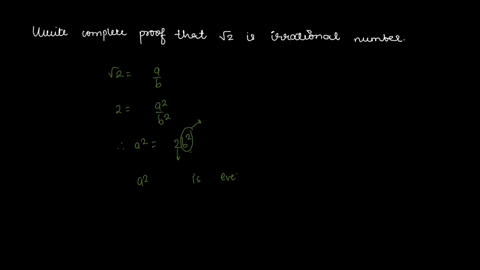 Write complete proof that √2 is irrational number.
√2 = a/b
2 = a²/b²
∴ a² = 2b²
a² is eve